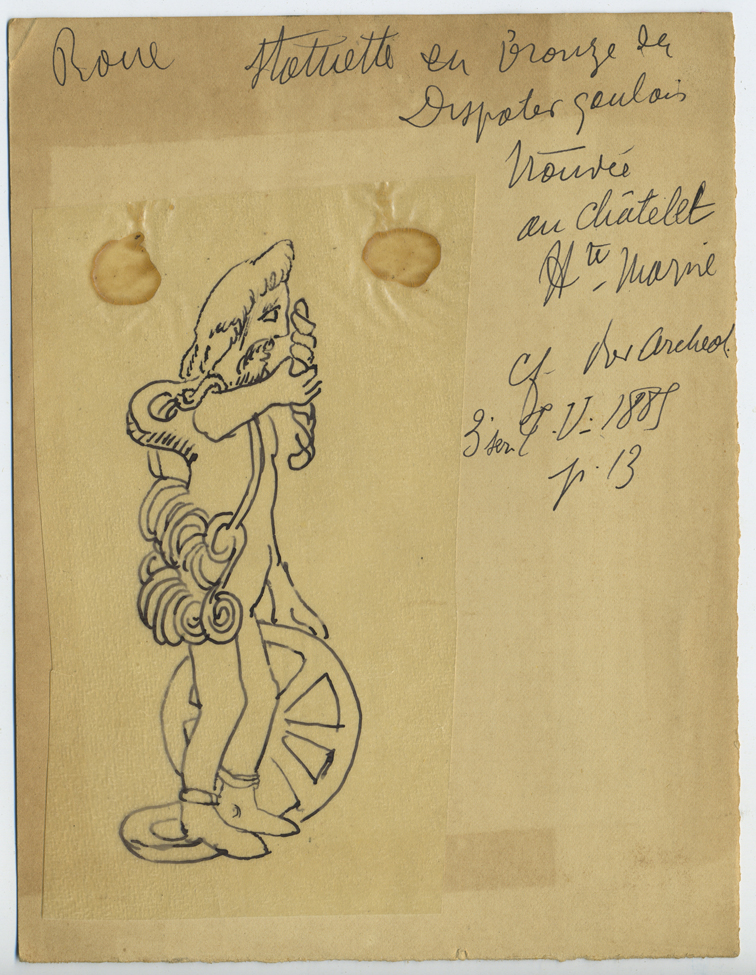 Roue Statuette en Bronze du
Dispater gaulois
trouvée
au châtelet
Hte Marne
cf. Rev Archeol.
3e ser T. V. 1885
p. 13